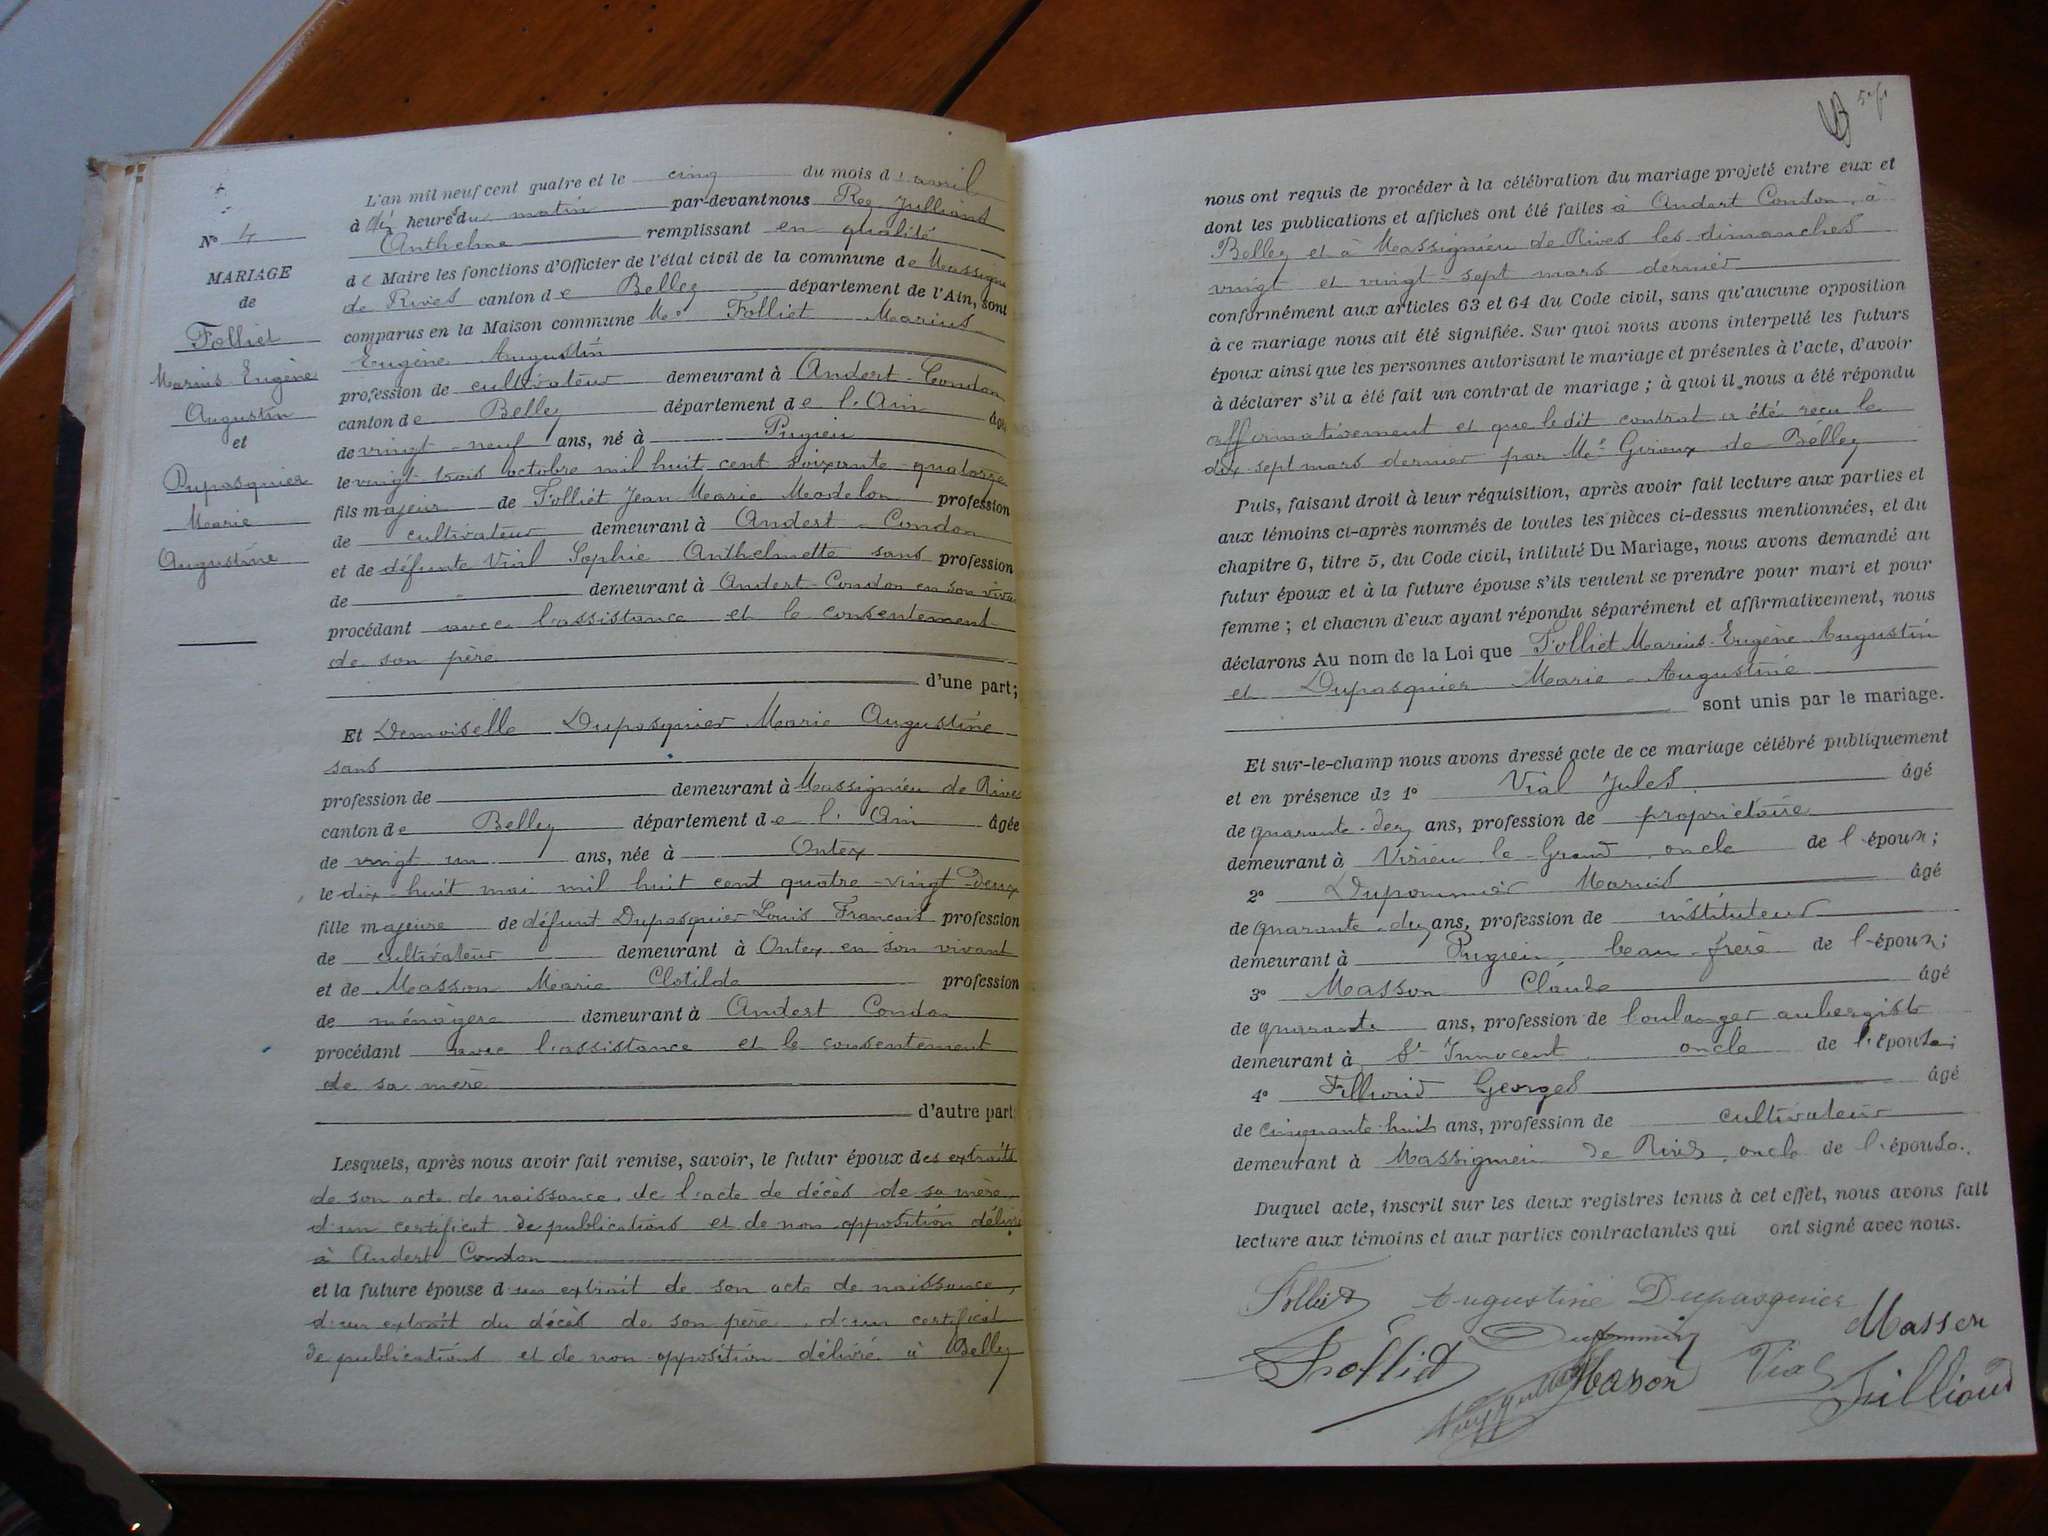 Nº 4
MARIAGE
de
Folliet
Marius Eugène
Augustin
et
Dupasquier
Marie
Augustine
L'an mil neuf cent quatre et le cinq du mois d'avril
à heures du matin par-devant nous Rey Julliand
Anthelme remplissant en qualité
de Maire les fonctions d'Officier de l'état civil de la commune de Massignieu
de Rives canton de Belley département de l'Ain, sont
comparus en la Maison commune Mr Folliet Marius
Eugène Augustin
profession de cultivateur demeurant à Andert-Condon
canton de Belley département de l'Ain âgé
de vingt-neuf ans, né à Pugieu
le vingt-trois octobre mil huit cent soixante-quatorze
fils majeur de Folliet Jean Marie Madelon profession
de cultivateur demeurant à Andert-Condon
et de défunte Vial Sophie Anthelmette sans profession
de demeurant à Andert-Condon en son viva
procédant avec l'assistance et le consentement
de son père
d'une part;
Et Demoiselle Dupasquier Marie Augustine
sans
profession de demeurant à Massignieu de Rives
canton de Belley département de l'Ain âgée
de vingt un ans, née à Ontex
le dix-huit mai mil huit cent quatre-vingt-deux
fille majeure de défunt Dupasquier Louis François profession
de cultivateur demeurant à Ontex en son vivant
et de Masson Marie Clotilde profession
de ménagère demeurant à Andert Condon
procédant avec l'assistance et le consentement
de sa mère
d'autre part:
Lesquels, après nous avoir fait remise, savoir, le futur époux des extraits
de son acte de naissance, de l'acte de décès de sa mère,
d'un certificat de publications et de non opposition délivré
à Andert Condon
et la future épouse d'un extrait de son acte de naissance,
d'un extrait du décès de son père, d'un certificat
de publications et de non opposition délivré à Belley
nous ont requis de procéder à la célébration du mariage projeté entre eux et
dont les publications et affiches ont été faites à Andert Condon, à
Belley et à Massignieu de Rives les dimanches
vingt et vingt-sept mars dernier
conformément aux articles 63 et 64 du Code civil, sans qu'aucune opposition
à ce mariage nous ait été signifiée. Sur quoi nous avons interpellé les futurs
époux ainsi que les personnes autorisant le mariage et présentes à l'acte, d'avoir
à déclarer s'il a été fait un contrat de mariage; à quoi il nous a été répondu
affirmativement et que ledit contrat a été reçu le
dix-sept mars dernier par Me Giroux de Belley
Puis, faisant droit à leur réquisition, après avoir fait lecture aux parties et
aux témoins ci-après nommés de toutes les pièces ci-dessus mentionnées, et du
chapitre 6, titre 5, du Code civil, intitulé Du Mariage, nous avons demandé au
futur époux et à la future épouse s'ils veulent se prendre pour mari et pour
femme; et chacun d'eux ayant répondu séparément et affirmativement, nous
déclarons Au nom de la Loi que Folliet Marius Eugène Augustin
et Dupasquier Marie-Augustine
sont unis par le mariage.
Et sur-le-champ nous avons dressé acte de ce mariage célébré publiquement
et en présence de 1º Vial Jules âgé
de quarante-dez ans, profession de propriétaire
demeurant à Virieu le Grand, oncle de l'époux;
2º Dupommier Marius âgé
de quarante-dez ans, profession de instituteur
demeurant à Pugieu, beau-frère de l'époux;
3º Masson Claude âgé
de quarante ans, profession de boulanger aubergiste
demeurant à St Innocent, oncle de l'épouse;
4º Georges âgé
de cinquante-huit ans, profession de cultivateur
demeurant à Massignieu de Rives, oncle de l'épouse.
Duquel acte, inscrit sur les deux registres tenus à cet effet, nous avons fait
lecture aux témoins et aux parties contractantes qui ont signé avec nous.
Folliet Augustine Dupasquier
Dupommier Masson
Folliet Masson Vial